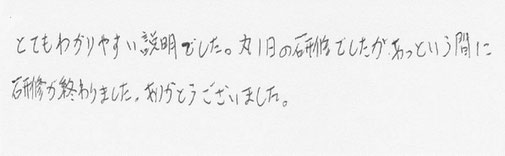 とてもわかりやすい説明でした。丸1日の研修でしたが、あっという間に
研修が終わりました。ありがとうございました。